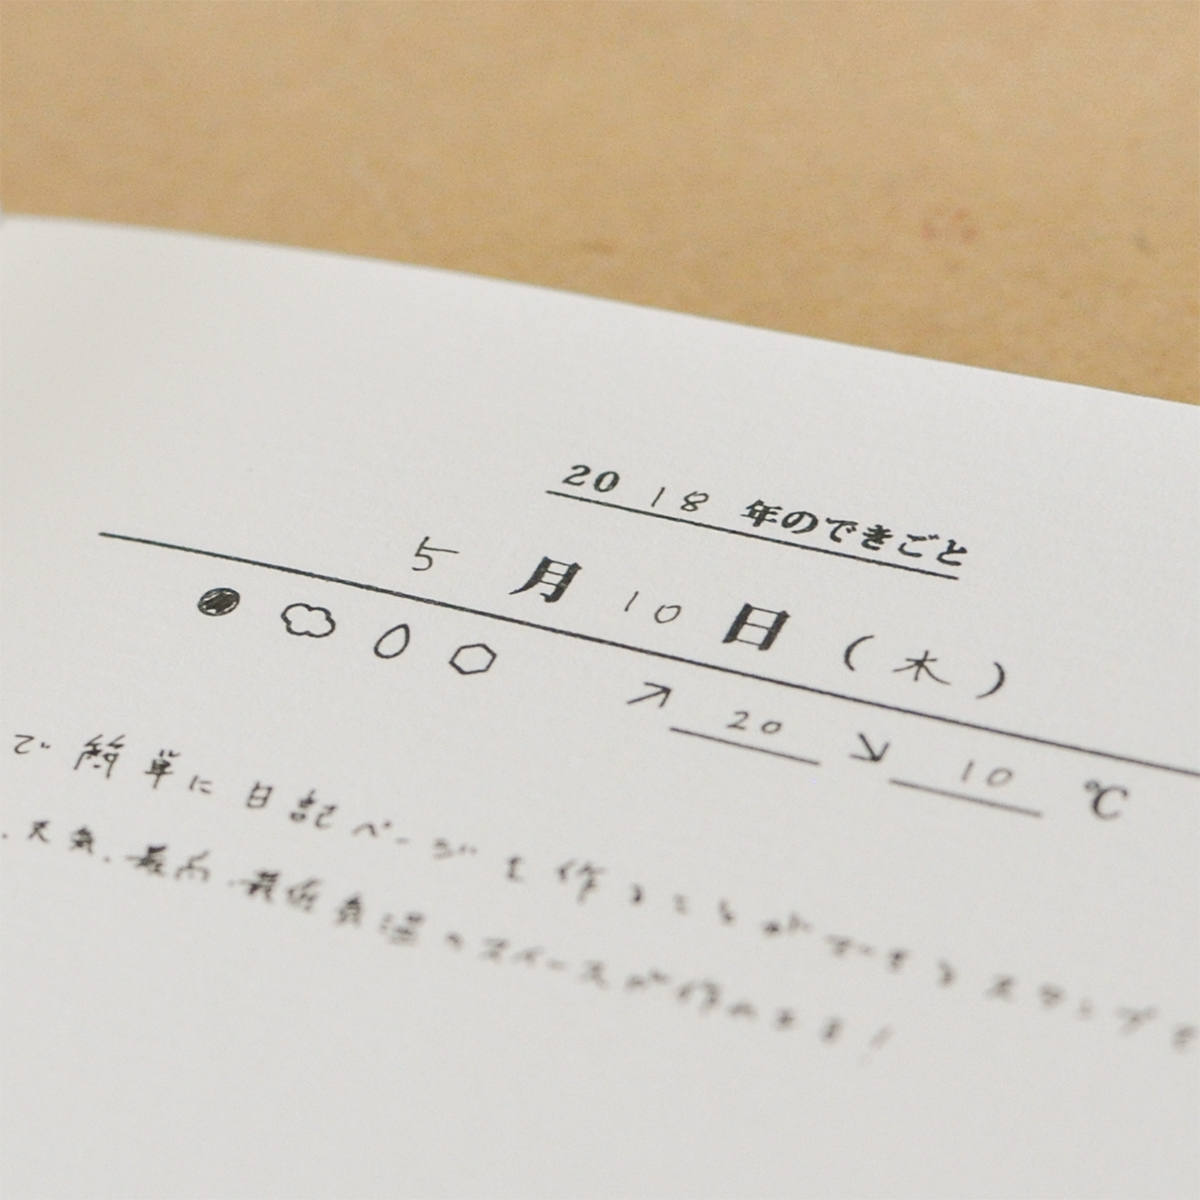 2018年のできごと
5月10日（木）
↗ 20 ↘ 10 ℃
で簡単に日記ページを作ることができるスタンプ
、天気、最高、最低気温のスペースが作れます！